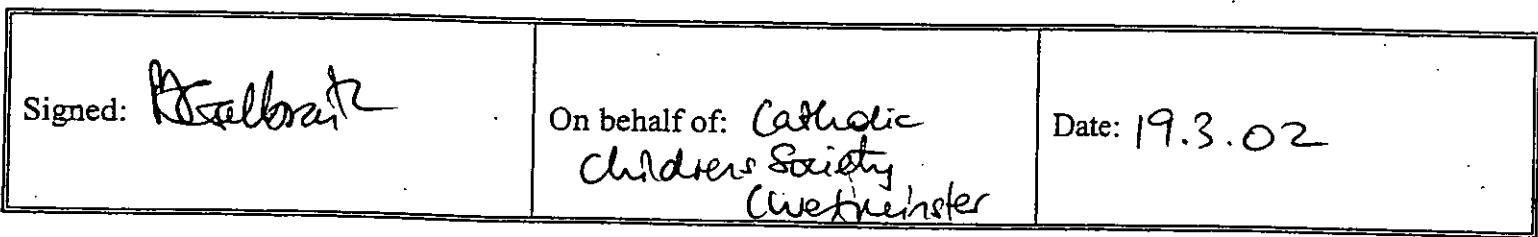 Signed: Galbraith
On behalf of: Catholic
Childrens Society
(Westminster
Date: 19.3.02